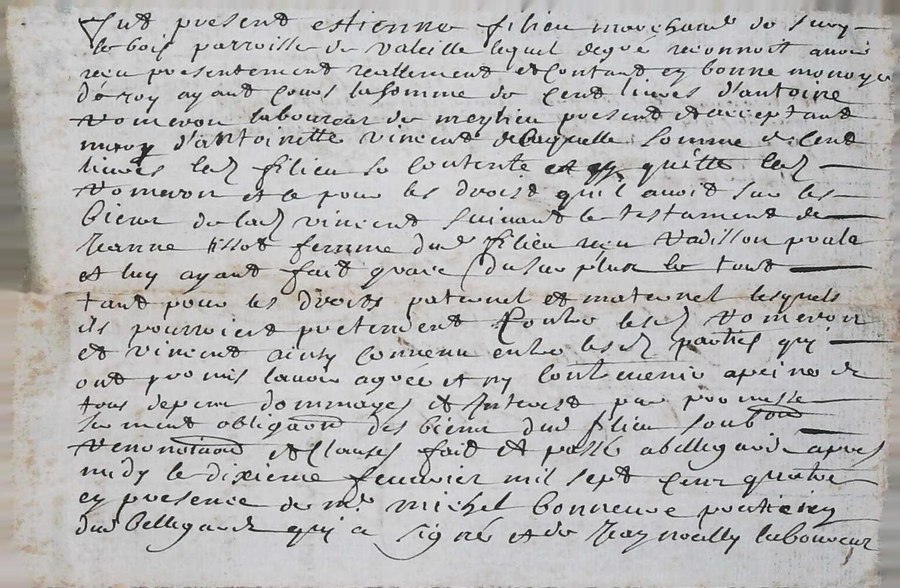 fut present estienne filieu marchand de sury
le bois parroisse de valeille lequel de gré reconnoit avoir
reçu presentement reellement et contant en bonne monoye
de roy ayant cours la somme de cent livres d'antoine
vomeron laboureur de meylieu present et acceptant
mary d'antoinette vincent de laquelle somme de cent
livres led filieu se contente et en quitte led
vomeron et ce pour les droits qu'il avoit sur les
biens de lad vincent suivant le testament de
Jeanne tissot femme dud filieu reçu
et luy ayant fait grace du surplus le tout
tant pour les droits paternel et maternel lesquels
ils pourroient pretendent contre lesd vomeron
et vincent ainsy convenu entre lesd parties qui
ont promis lavoir agréé et ny contrevenir a peine de
tous depens dommages et interest par promesse
serment obligaon des biens dud filieu soub
renonciaon et clauses fait et passé a bellegarde apres
midy le dixieme fevrier mil sept cens quatre
en presence de mr michel bonnevue praticien
dud bellegarde qui a signé et de Jean noailly laboureur